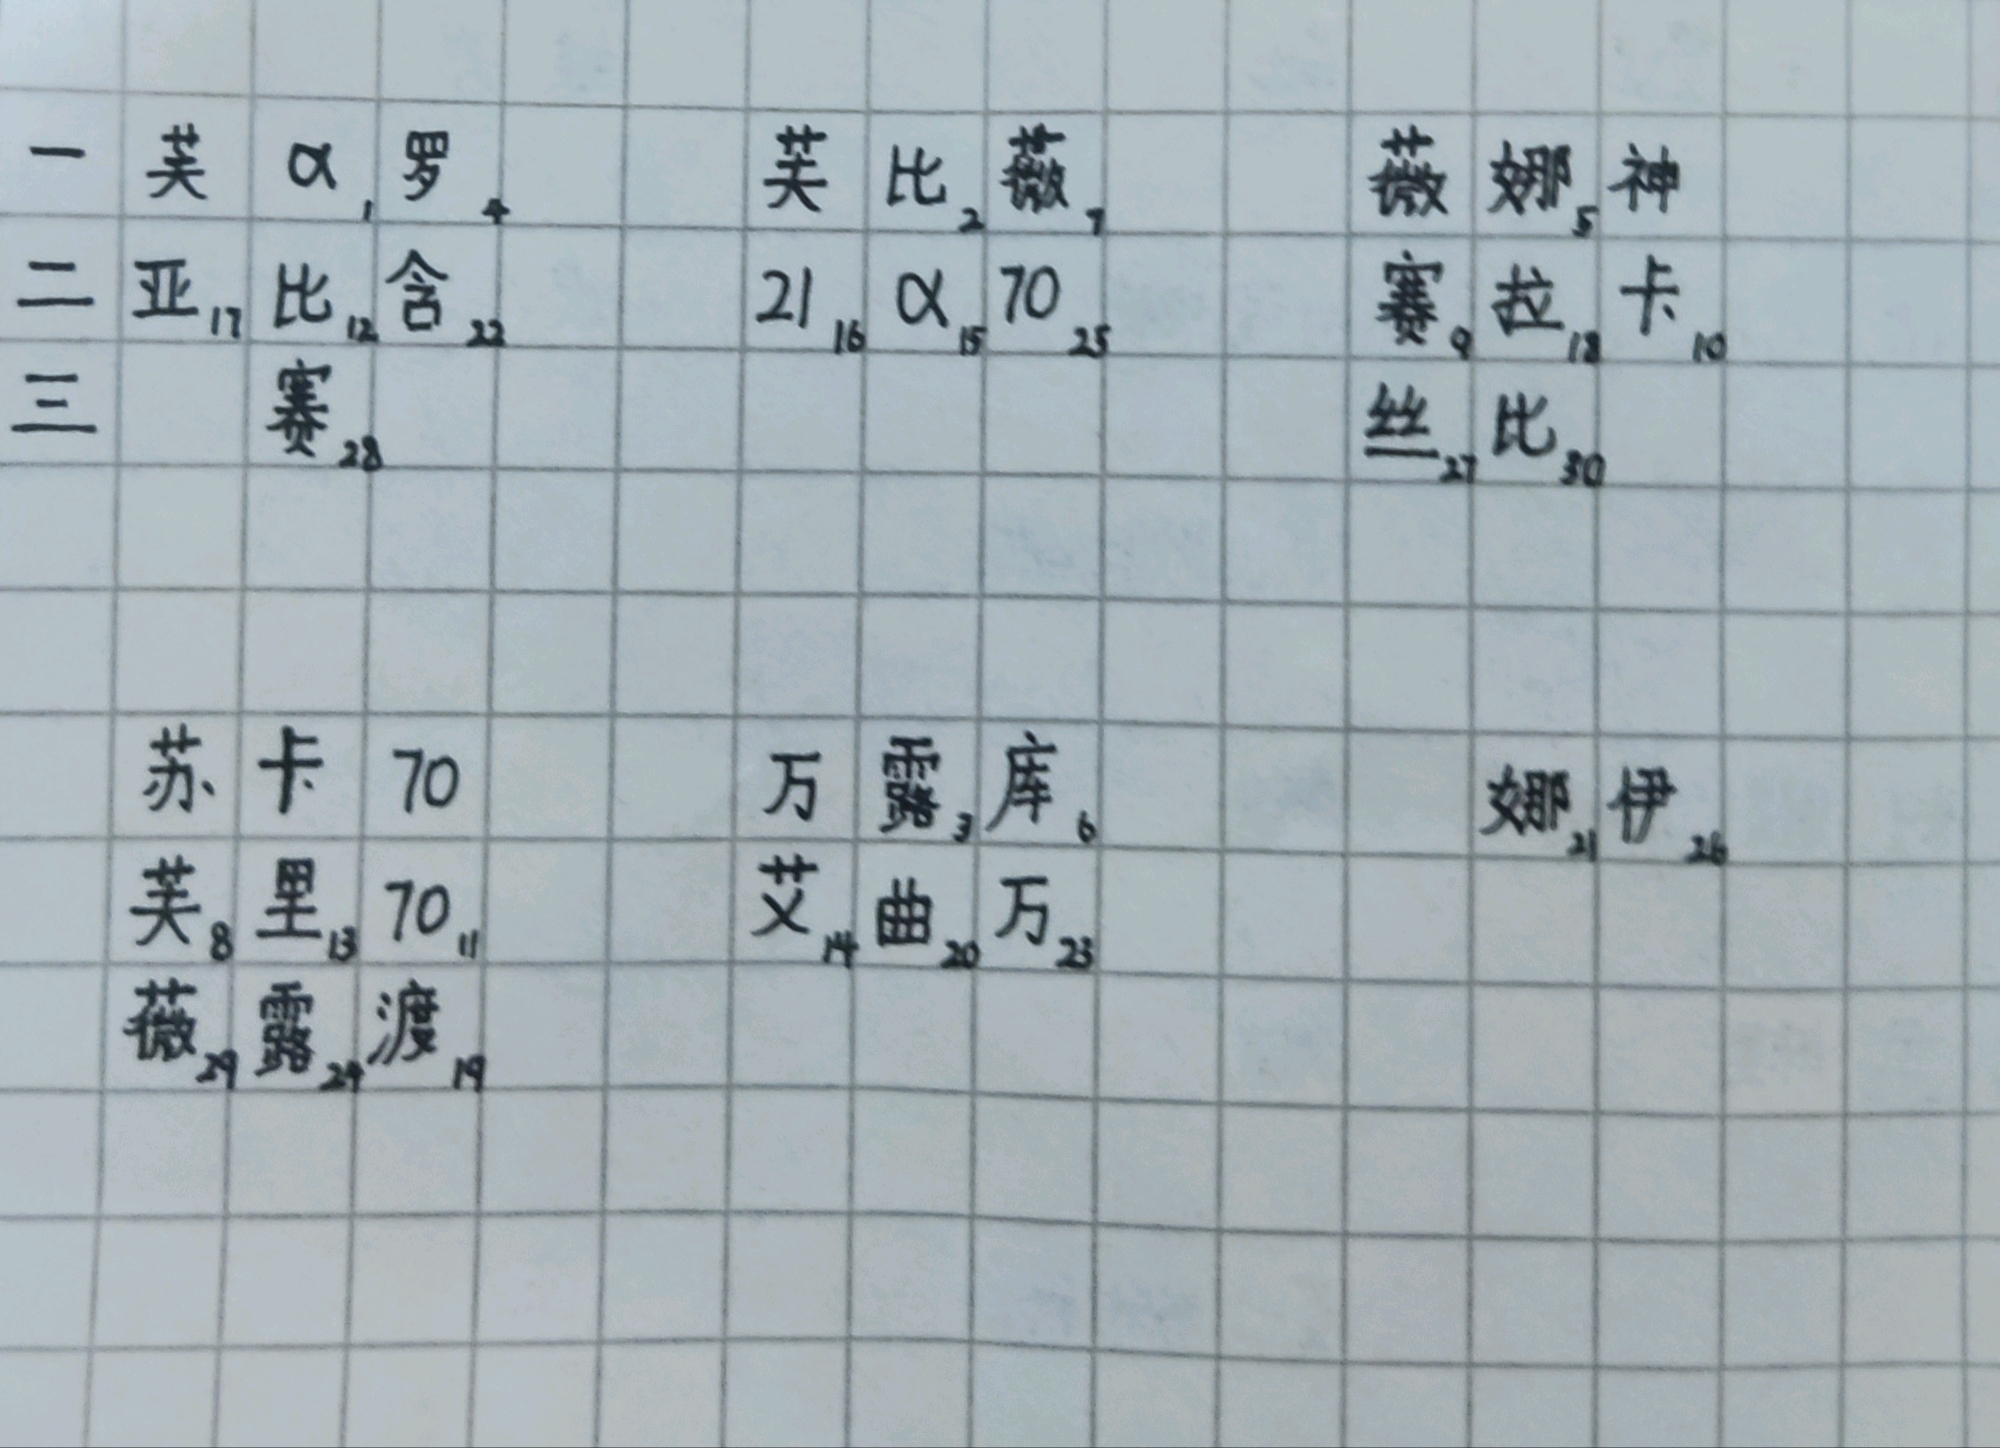 一 芙 α1 罗4 芙 比2 薇7 薇 娜5 神
二 亚17 比12 含22 21 16 α15 70 25 赛9 拉18 卡10
三 赛28 丝27 比30
苏 卡 70 万 露3 库6 娜21 伊26
芙8 里13 70 11 艾14 曲20 万23
薇29 露24 渡19